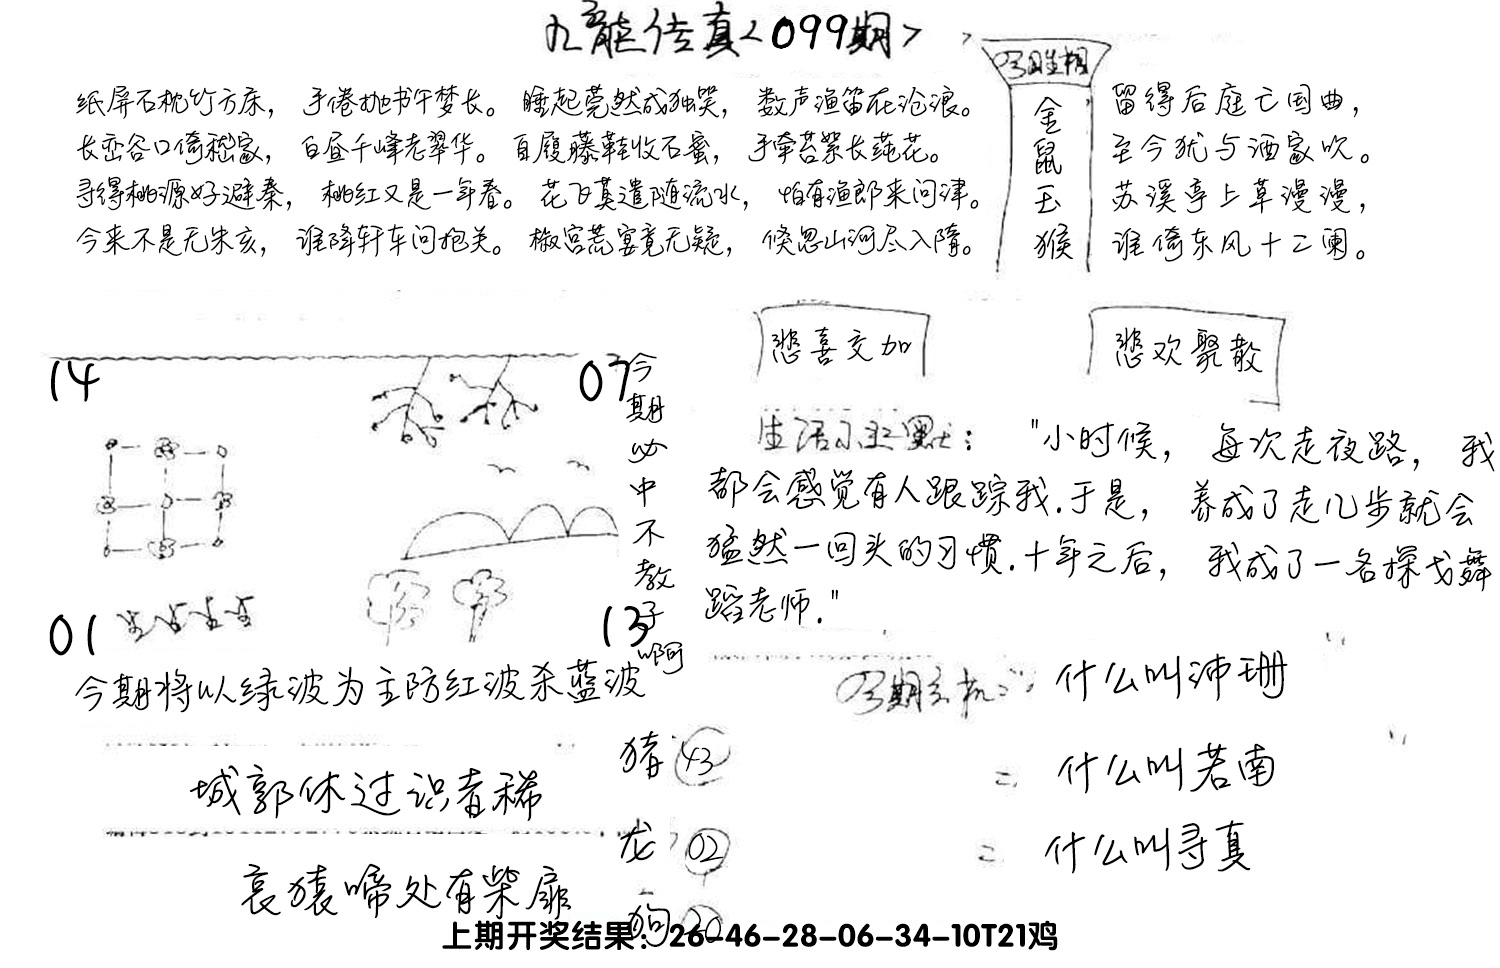 九龙传真<099期>
纸屏石枕竹方床，手倦抛书午梦长。睡起莞然成独笑，数声渔笛在沧浪。
长峦谷口倚嵇家，白昼千峰老翠华。自履藤鞋收石蜜，手牵苔絮长莼花。
寻得桃源好避秦，桃红又是一年春。花飞莫遣随流水，怕有渔郎来问津。
今来不是无朱亥，谁降轩车问抱关。椒宫荒宴竟无疑，倏忽山河尽入隋。
今日生相
金
鼠
玉
猴
留得后庭亡国曲，
至今犹与酒家吹。
苏溪亭上草漫漫，
谁倚东风十二阑。
14
07
01
13
今期必中不教子啊
今期将以绿波为主防红波杀蓝波
悲喜交加
悲欢聚散
生活小幽默："小时候，每次走夜路，我
都会感觉有人跟踪我.于是，养成了走几步就会
猛然一回头的习惯.十年之后，我成了一名探戈舞
蹈老师."
今期玄机：什么叫沛珊
= 什么叫若南
= 什么叫寻真
城郭休过识者稀
哀猿啼处有柴扉
猪 43
龙 02
狗 20
上期开奖结果：26-46-28-06-34-10T21鸡